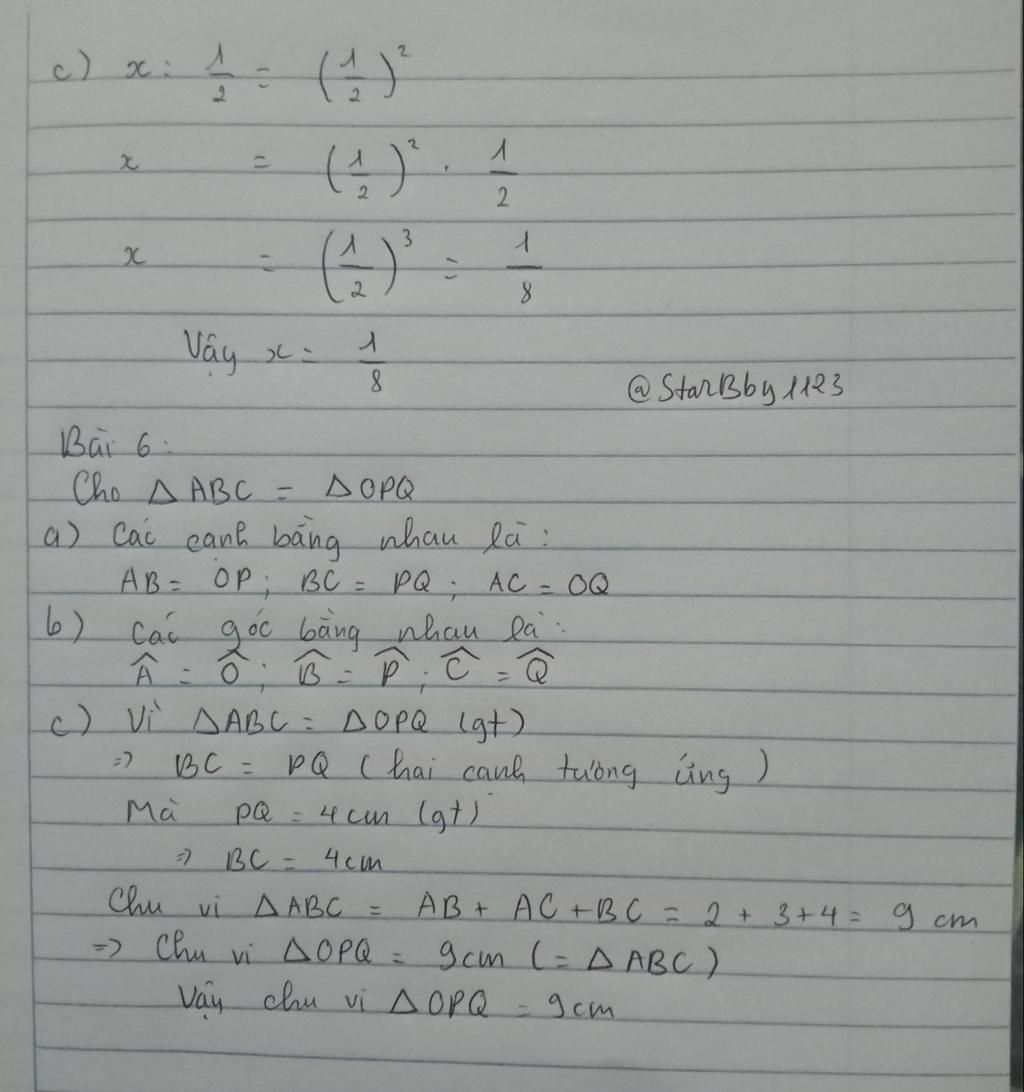 c) x : 1/2 = (1/2)²
x = (1/2)² . 1/2
x = (1/2)³ = 1/8
Vậy x = 1/8
@StarBby1123
Bài 6:
Cho △ABC = △OPQ
a) Các cạnh bằng nhau là:
AB = OP; BC = PQ; AC = OQ
b) Các góc bằng nhau là:
Â = Ô; B̂ = P̂; Ĉ = Q̂
c) Vì △ABC = △OPQ (gt)
=> BC = PQ (hai cạnh tương ứng)
Mà PQ = 4cm (gt)
=> BC = 4cm
Chu vi △ABC = AB + AC + BC = 2 + 3 + 4 = 9 cm
=> Chu vi △OPQ = 9cm (= △ABC)
Vậy chu vi △OPQ = 9cm